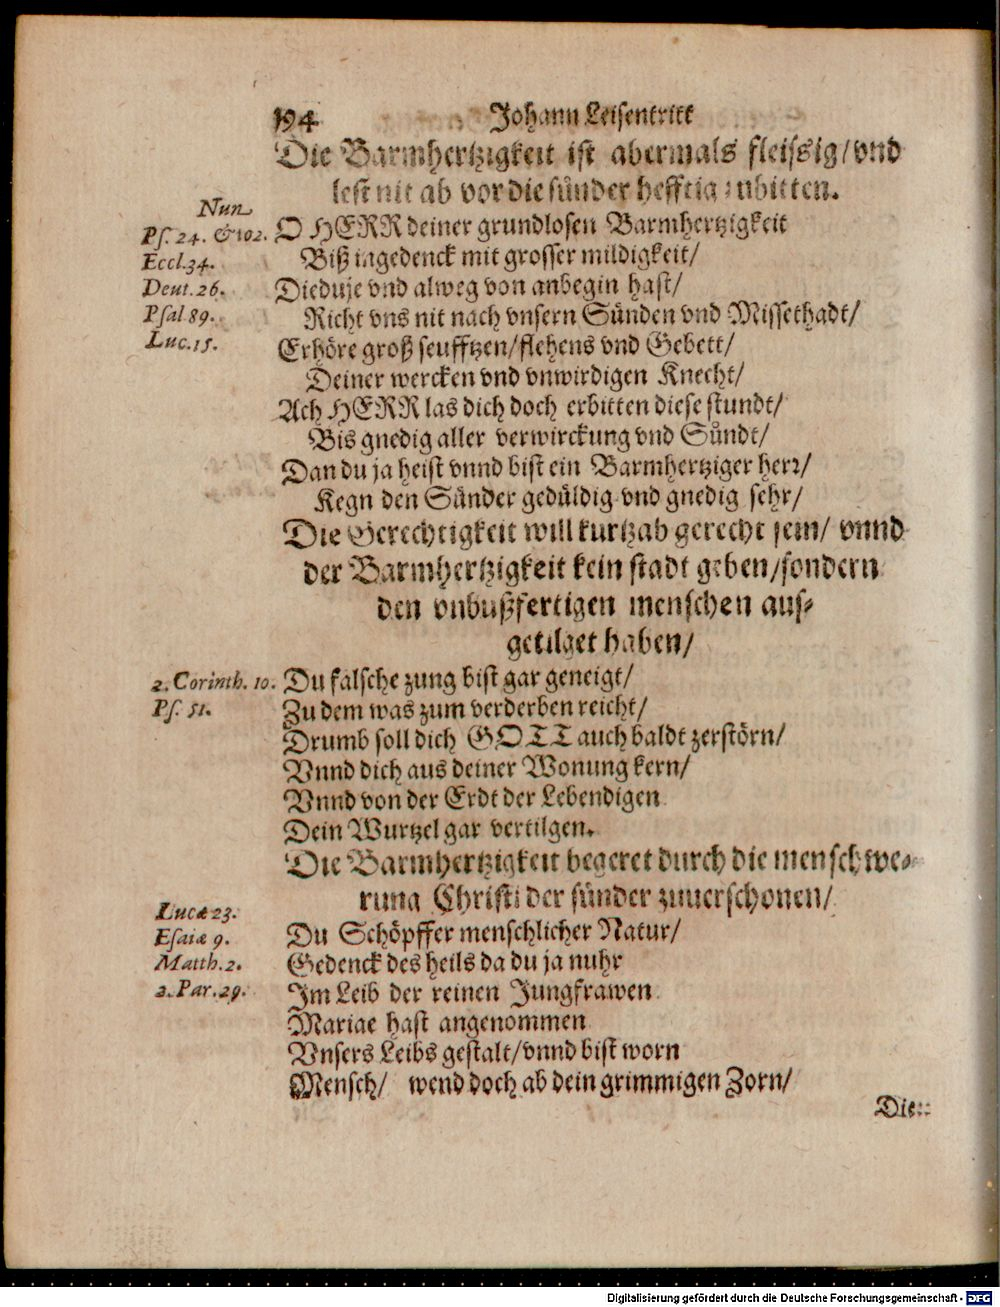 194 Johann Leisentritt
Die Barmhertzigkeit ist abermals fleissig/vnd
lest nit ab vor die sünder hefftig zubitten.
Nun
Ps. 24. &102.
Eccl.34.
Deut.26.
Psal 89.
Luc.15.
O HERR deiner grundlosen Barmhertzigkeit
Biß ingedenck mit grosser mildigkeit/
Die du je vnd alweg von anbegin hast/
Richt vns nit nach vnsern Sünden vnd Missethadt/
Erhöre groß seufftzen/flehens vnd Gebett/
Deiner wercken vnd vnwirdigen Knecht/
Ach HERR las dich doch erbitten diese stundt/
Bis gnedig aller verwirckung vnd Sündt/
Dan du ja heist vnnd bist ein Barmhertziger herr/
Kegn den Sünder gedüldig vnd gnedig sehr/
Die Gerechtigkeit will kurtzab gerecht sein/ vnnd
der Barmhertzigkeit kein stadt geben/sondern
den vnbußfertigen menschen aus-
getilget haben/
2. Corinth. 10.
Ps. 51.
Du falsche zung bist gar geneigt/
Zu dem was zum verderben reicht/
Drumb soll dich GOTT auch baldt zerstörn/
Vnnd dich aus deiner Wonung kern/
Vnnd von der Erdt der Lebendigen
Dein Wurtzel gar vertilgen.
Die Barmhertzigkeit begeret durch die menschwe-
rung Christi der sünder zuuerschonen/
Lucæ 23.
Esaiæ 9.
Matth.2.
2. Par.29.
Du Schöpffer menschlicher Natur/
Gedenck des heils da du ja nuhr
Im Leib der reinen Jungfrawen
Mariae hast angenommen
Vnsers Leibs gestalt/vnnd bist worn
Mensch/ wend doch ab dein grimmigen Zorn/
Die
Digitalisierung gefördert durch die Deutsche Forschungsgemeinschaft - DFG